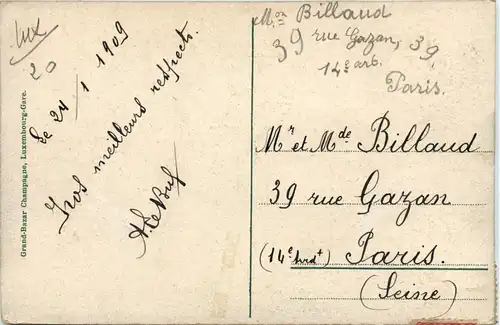 Lux
20
Le 24/1 1909
Nos meilleurs respects.
Grand-Bazar Champagne, Luxembourg-Gare.
Mon Billaud
39 rue Gazan, 39
14e arb.
Paris.
Mr et Mde Billaud
39 rue Gazan
(14e Arrdt) Paris.
(Seine)